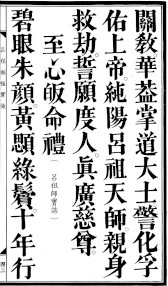 闢敎華葢掌道大士警化孚
佑上帝純陽呂祖天師親身
救劫誓願度人眞廣慈尊
至心皈命禮（呂祖師寶誥）
碧眼朱顏黃顋綠鬢十年行
呂祖師寶誥
四三